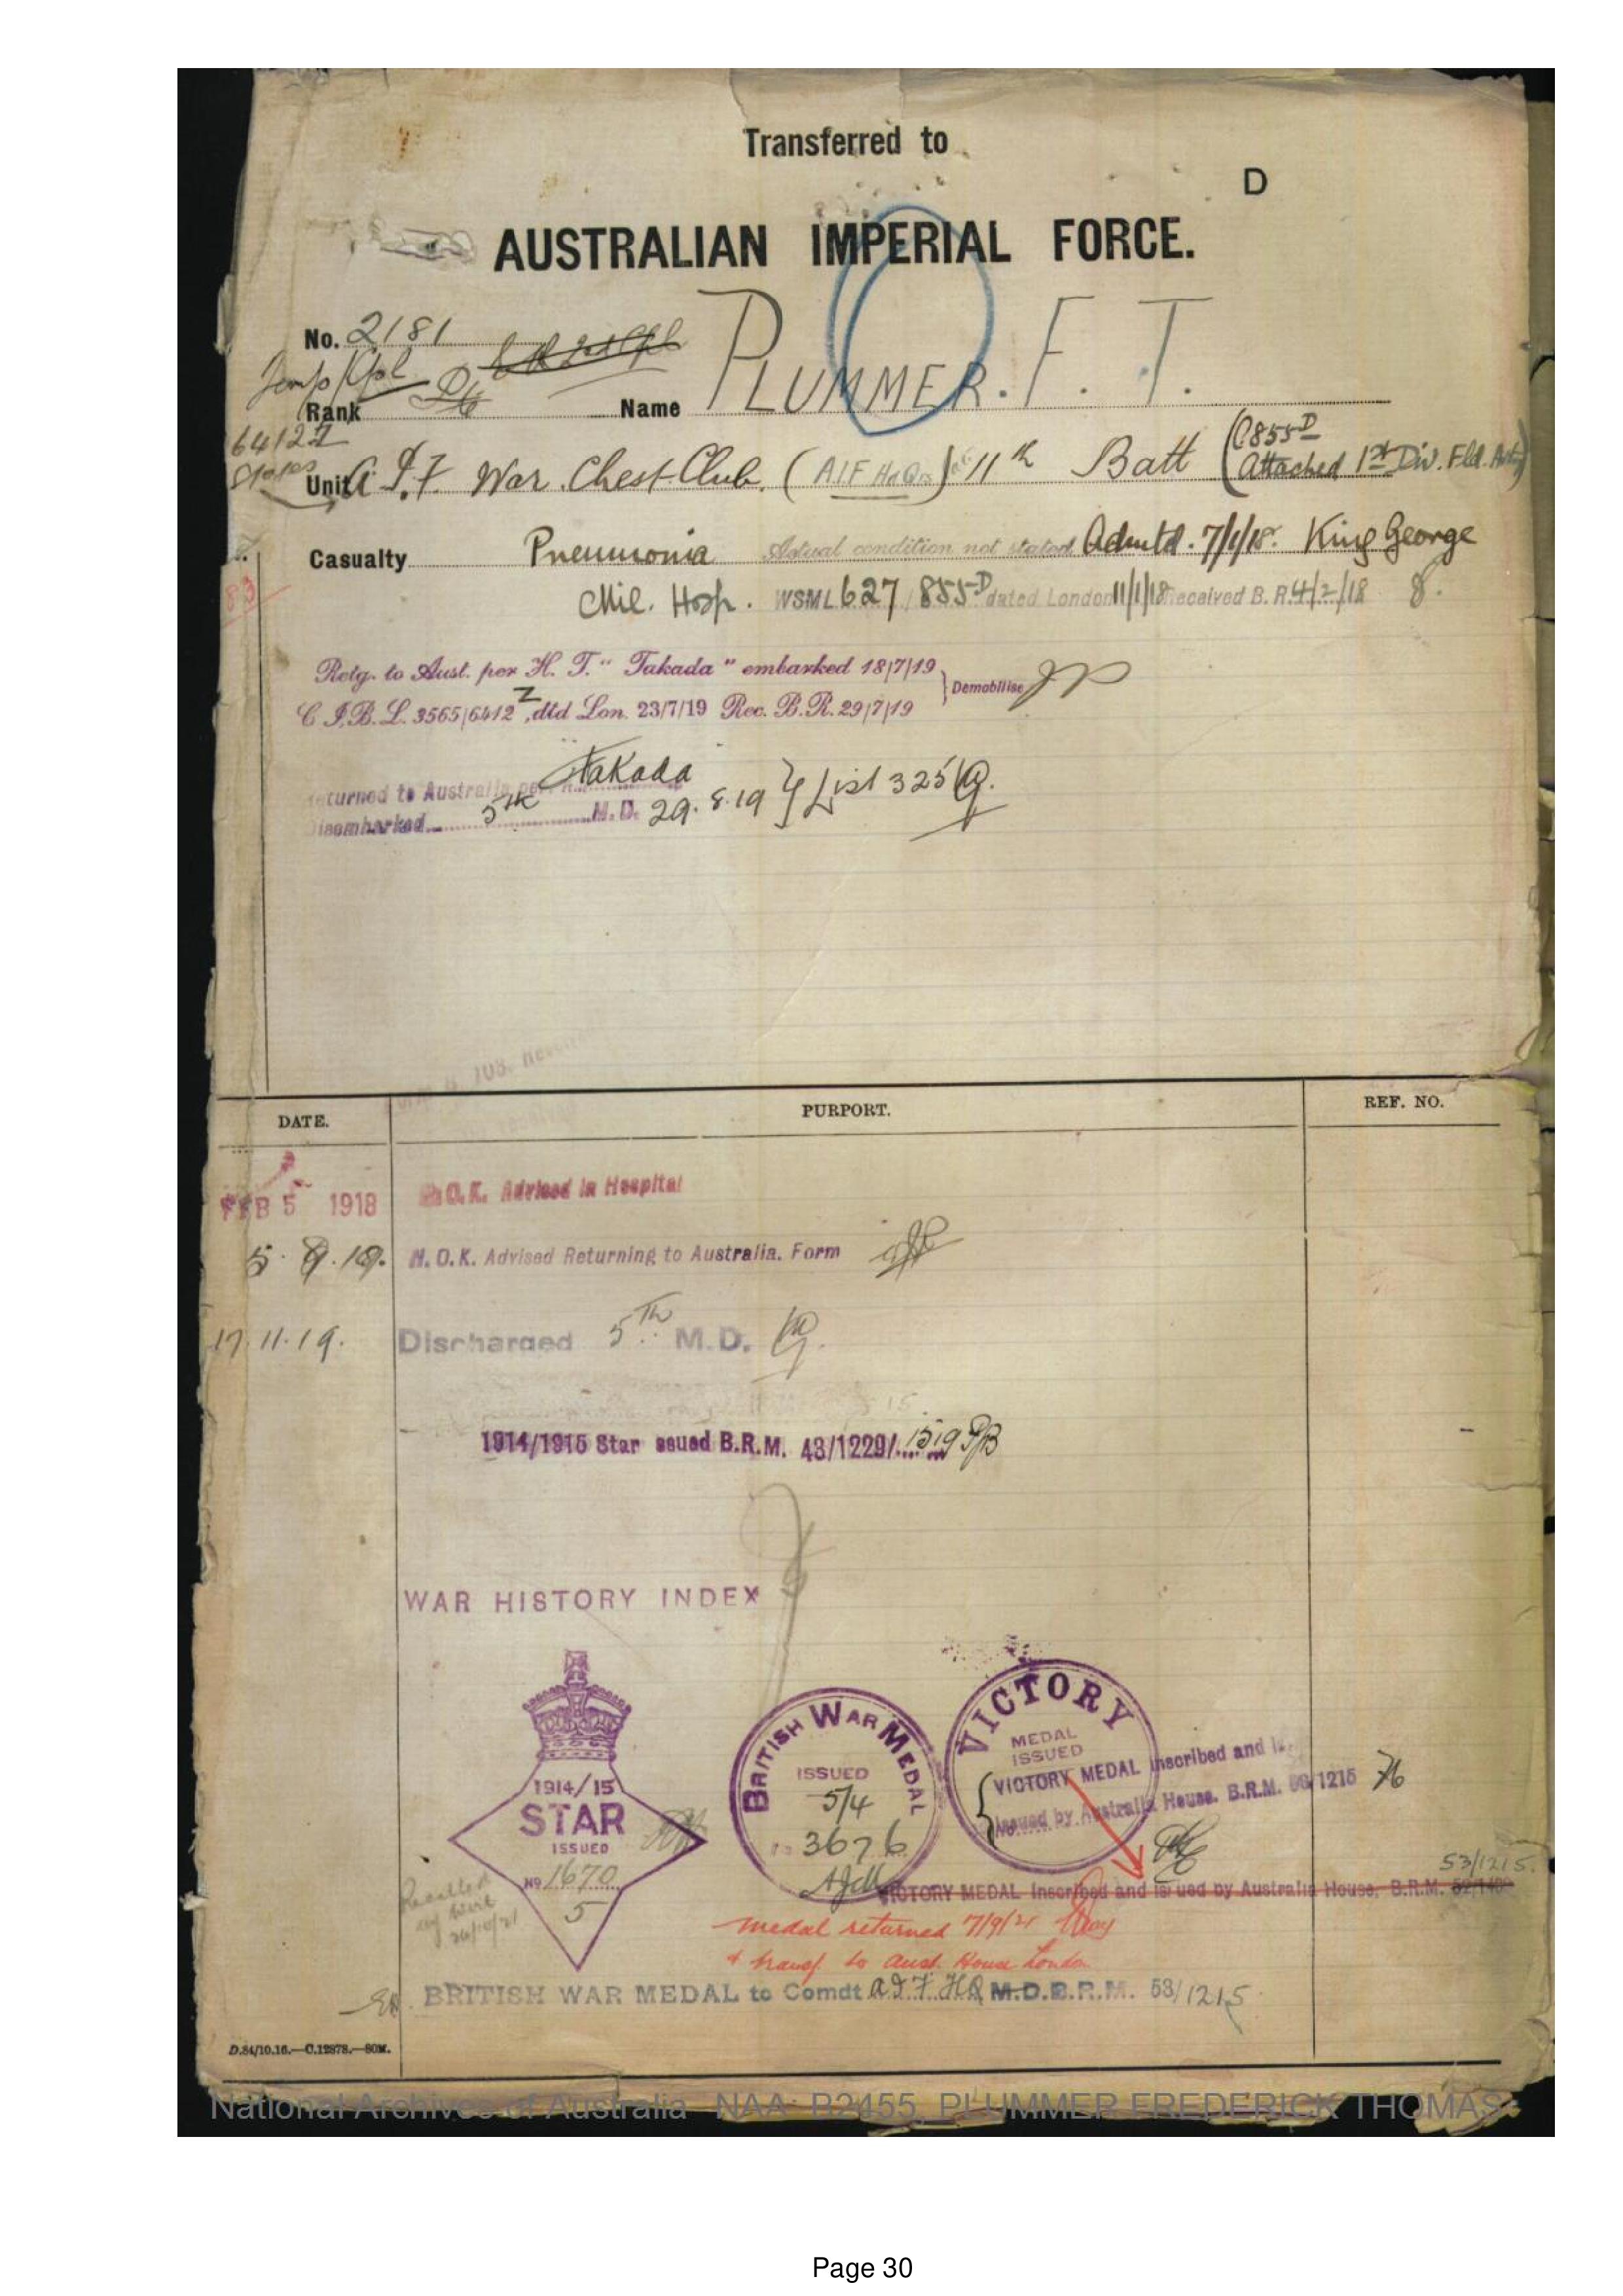 Transferred to
D
AUSTRALIAN IMPERIAL FORCE.
No. 2181
Temp/Cpl
Rank Name PLUMMER. F. T.
6412Z
Unit A.I.F. War Chest Club. (AIF HdQrs) 11th Batt (C855D
Attached 1st Div. Fld. Arty)
Casualty Pneumonia Actual condition not stated Admtd. 7/1/18. King George
Mil. Hosp. WSML 627/855D dated London 11/1/18 Received B.R. 4/2/18 8.
83
Retg. to Aust. per H. T. "Takada" embarked 18/7/19
Demobilise
C I.B.L. 3565/6412 Z, dtd Lon. 23/7/19 Rec. B.R. 29/7/19
Returned to Australia per Takada
Disembarked 5th M.D. 29.8.19 } List 325
DATE. PURPORT. REF. NO.
FEB 5 1918 N.O.K. Advised in Hospital
5. 9. 19. N.O.K. Advised Returning to Australia. Form
17.11.19. Discharged 5th M.D.
1914/1915 Star issued B.R.M. 43/1229/ 1519
WAR HISTORY INDEX
1914/15
STAR
ISSUED
No 1670
5
BRITISH WAR MEDAL
ISSUED
5/4
3676
VICTORY
MEDAL
ISSUED
VICTORY MEDAL inscribed and
issued by Australia House. B.R.M. /1215
53/1215.
VICTORY MEDAL inscribed and issued by Australia House, B.R.M.
Recalled
26/10/21
medal returned 7/9/21
& transf to Aust. House London
BRITISH WAR MEDAL to Comdt AIF HQ M.D.B.R.M. 53/1215
D.84/10.16.—C.12878.—80M.
National Archives of Australia NAA: B2455, PLUMMER FREDERICK THOMAS
Page 30